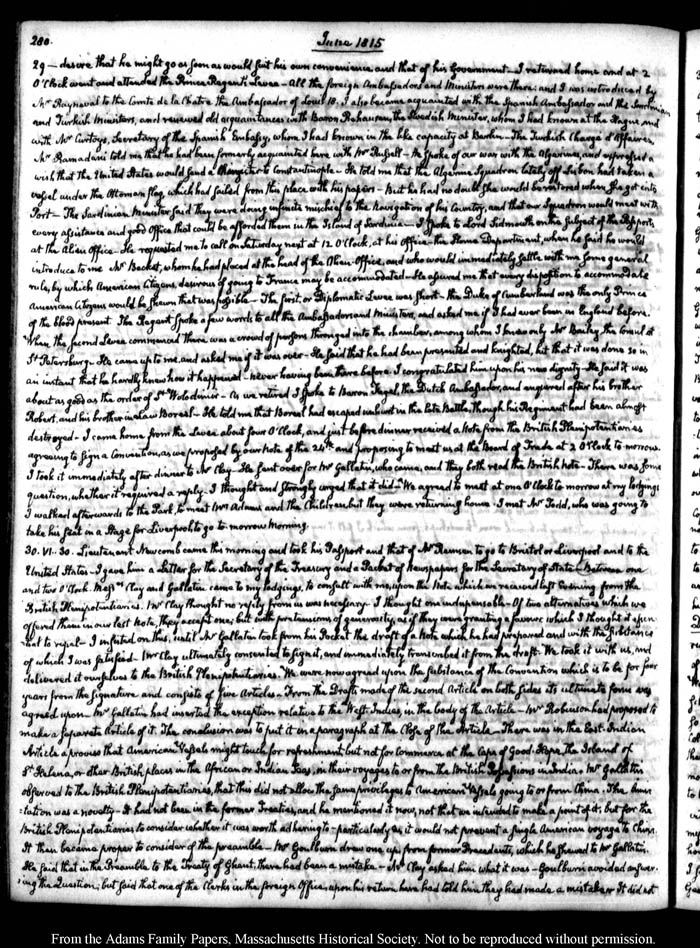 280.
June 1815
29 — desire that he might go as soon as would suit his own convenience and that of his Government — I returned home and at 2
O'Clock went and attended the Prince Regent's Levee — All the foreign Ambassadors and Ministers were there: and I was introduced by
Mr Raynaval to the Comte de la Chatre the Ambassador of Louis 18. I also became acquainted with the Spanish Ambassador and the Sardinian
and Turkish Ministers, and renewed old acquaintances with Baron Rehausen, the Swedish Minister, whom I had known at the Hague and
with Mr Curtoys, Secretary of the Spanish Embassy, whom I had known in the like capacity at Berlin — The Turkish Chargé d'Affaires,
Mr Ramadani told me that he had been formerly acquainted here with Mr Russell — He spoke of our war with the Algerines, and expressed a
wish that the United States would send a Minister to Constantinople — He told me that the Algerine Squadron lately off Lisbon had taken a
vessel under the Ottoman flag, which had sailed from this place with his papers — But he had no doubt she would be restored when she got into
Port — The Sardinian Minister said they were doing infinite mischief to the Navigation of his Country, and that our Squadron would meet with
every assistance and good Office that could be afforded them in the Island of Sardinia — I spoke to Lord Sidmouth on the subject of the Passports
at the Alien Office — He requested me to call on Saturday next at 12 O'Clock, at his Office, the Home Department, when he said he would
introduce to me Mr Becket, whom he had placed at the head of the Alien-Office, and who would immediately settle with me some general
rule, by which American Citizens, desirous of going to France may be accommodated — He assured me that every disposition to accommodate
American Citizens would be shewn that was possible — The first, or Diplomatic Levee was short — the Duke of Cumberland was the only Prince
of the blood present. The Regent spoke a few words to all the Ambassadors and Ministers, and asked me if I had ever been in England before.
When the second Levee commenced there was a crowd of persons thronged into the chamber, among whom I knew only Mr Bailey the Consul at
St Petersburg — He came up to me, and asked me if it was over — He said that he had been presented and knighted, but that it was done so in
an instant that he hardly knew how it happened — never having been there before. I congratulated him upon his new dignity — He said it was
about as good as the order of St Wolodimir — As we retired I spoke to Baron Fagel, the Dutch Ambassador, and enquired after his brother
Robert, and his brother in Law Boreel — He told me that Boreel had escaped unhurt in the late Battle, though his Regiment had been almost
destroyed — I came home from the Levee about four O'Clock, and just before dinner received a Note from the British Plenipotentiaries
agreeing to sign a Convention, as we proposed by our Note of the 24th and proposing to meet us at the Board of Trade at 2 O'Clock to-morrow.
I took it immediately after dinner to Mr Clay — He sent over for Mr Gallatin, who came, and they both read the British Note — There was some
question, whether it required a reply. I thought and strongly urged that it did — We agreed to meet at one O'Clock to morrow at my lodgings
I walked afterwards to the Park, to meet Mrs Adams and the Children but they were returning home. I met Mr Todd, who was going to
take his seat in a Stage for Liverpool to go to-morrow Morning.
30. VI. 30. Lieutenant Newcomb came this morning and took his Passport and that of Mr to go to Bristol or Liverpool and to the
United States — I gave him a Letter for the Secretary of the Treasury and a Packet of Newspapers for the Secretary of State. Between one
and two O'Clock Messrs Clay and Gallatin came to my lodgings, to consult with me, upon the Note which we received last Evening from the
British Plenipotentiaries. Mr Clay thought no reply from us was necessary. I thought one indispensable — Of two alternatives which we
offered them in our last Note, they accept one; but with pretensions of generosity, as if they were granting a favour which I thought it essen-
tial to repel — I insisted on this, until Mr Gallatin took from his Pocket the draft of a Note which he had prepared and with the substance
of which I was satisfied. Mr Clay ultimately consented to sign it, and immediately transcribed it from the draft. We took it with us, and
delivered it ourselves to the British Plenipotentiaries. We were now agreed upon the substance of the Convention which is to be for four
years from the signature and consists of five Articles — From the Drafts made of the second Article on both sides its ultimate form was
agreed upon. Mr Gallatin had inserted the exception relative to the West-Indies, in the body of the Article — Mr Robinson had proposed to
make a separate Article of it. The conclusion was to put it in a paragraph at the Close of the Article — There was in the East-Indian
Article a proviso that American Vessels might touch for refreshment but not for commerce at the Cape of Good-Hope, the Island of
St Helena, or other British places in the African or Indian Seas, in their voyages to or from the British Possessions in India. Mr Gallatin
observed to the British Plenipotentiaries, that this did not allow the same privileges to American Vessels going to or from China. This limi-
tation was a novelty — It had not been in the former Treaties, and he mentioned it now, not that we intended to make a point of it, but for the
British Plenipotentiaries to consider whether it was worth adhering to — particularly as it would not prevent a single American voyage to China.
It then became proper to consider of the preamble — Mr Goulburn drew one up, from former Precedents, which he shewed to Mr Gallatin.
He said that in the Preamble to the Treaty of Ghent, there had been a mistake — Mr Clay asked him what it was — Goulburn avoided answer-
ing the Question; but said that one of the Clerks in the foreign Office, upon his return here had told him they had made a mistake. It did not
From the Adams Family Papers, Massachusetts Historical Society. Not to be reproduced without permission.